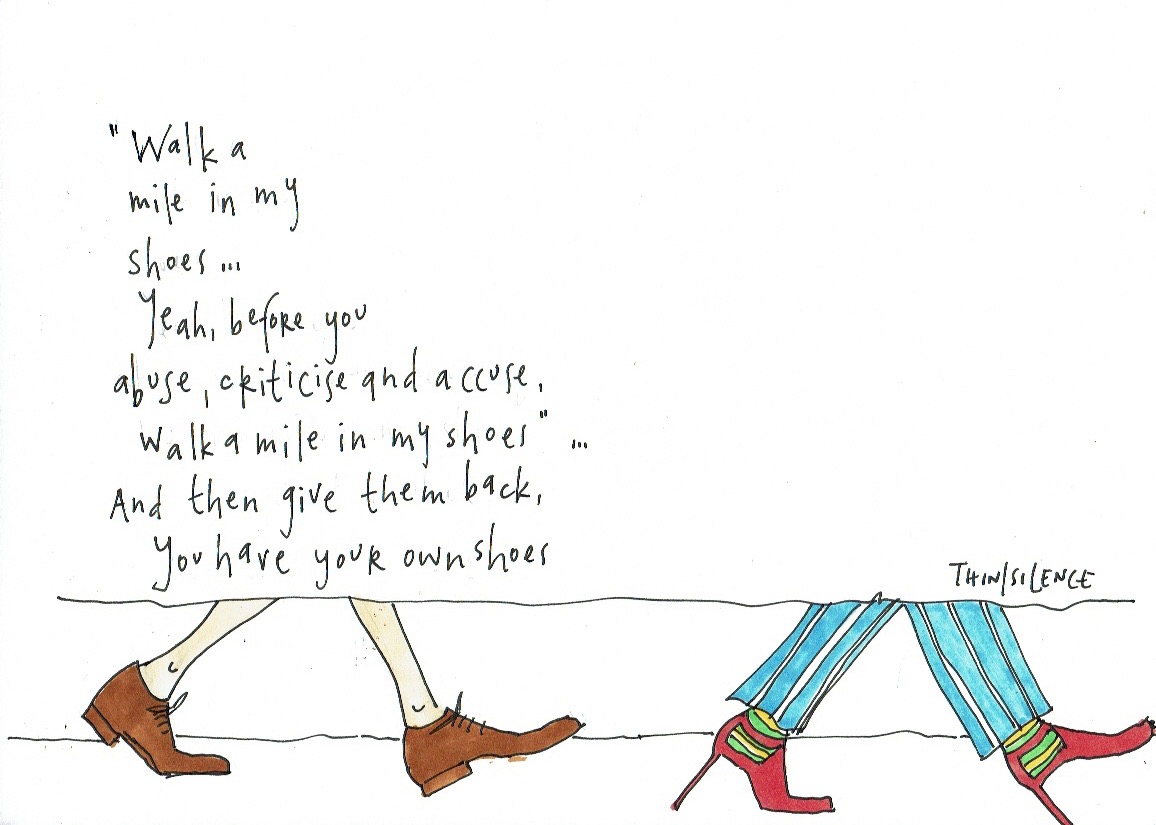 "Walk a
mile in my
shoes...
Yeah, before you
abuse, criticise and accuse,
walk a mile in my shoes"...
And then give them back,
you have your own shoes
THIN/SILENCE